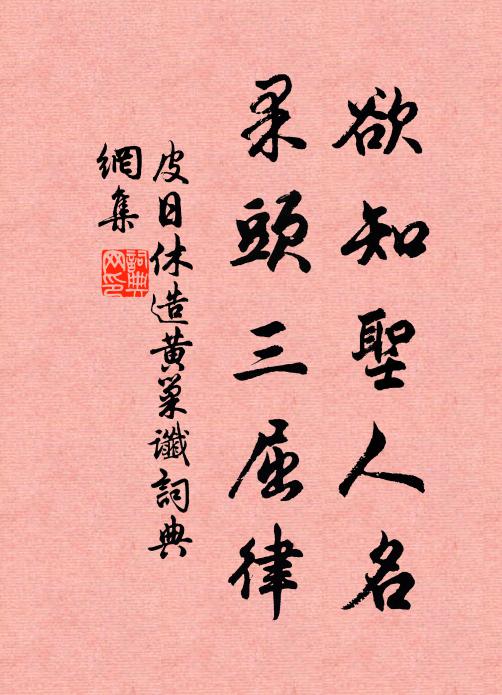 欲知聖人名
果頭三屈律
皮日休造黃巢讖詞典
網集
詞典
网印